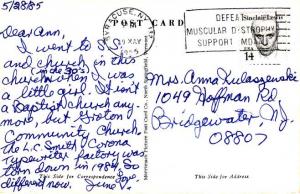 5/28/85
SYRACUSE, NY
29 MAY
1985
DEFEAT
MUSCULAR DYSTROPHY
SUPPORT MDA
Sinclair Lewis
USA
14
POST CARD
Dear Ann,
I went to SS
and church in this
church when I was
(in the 30's)
a little girl. It isn't
a Baptist Church any-
more, but Groton
Community Church.
The L.C. Smith Corona
Typewriter factory was
torn down in 1984. So
different now. June
Mrs. Anna Lulaszewski
1049 Hoffman Rd
Bridgewater Nj.
08807
This Side for Correspondence
This Side for Address